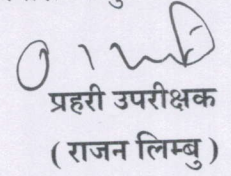 प्रहरी उपरीक्षक
( राजन लिम्बु )